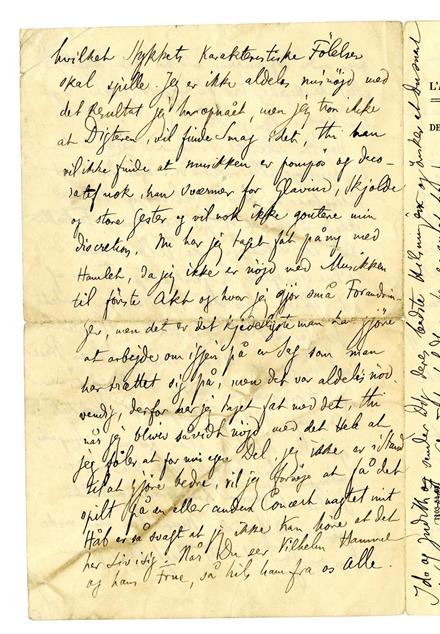 hvilket Stykkets Karakteristiske Følelser
skal spille. Jeg er ikke aldeles misnøjd med
det Resultat jeg har opnået, men jeg tror ikke
at Digteren, vil finde Smag i det, thi han
vil ikke finde at musikken er pompøs og deco-
ratif nok, han sværmer for Glavind, Skjolde
og store Gester og vil nok ikke goutere min
discretion. Nu har jeg taget fat påny med
Hamlet, da jeg ikke er nøjd med Musikken
til første Akt og hvor jeg gjør små Forandrin-
ger, men det er det kjedeligste man kan gjøre
at arbejde om igjen på en Sag som man
har trættet sig på, men det var aldeles nød-
vendig, derfor har jeg taget fat med det, thi
når jeg bliver såvidt nøjd med det at
jeg føler at for min egen Del jeg ikke er i Stand
til at gjøre bedre, vil jeg forsøge at få det
spilt på en eller anden Concert uagtet mit
Håb er så svagt at jeg ikke kan høre at det
har Liv i sig. Når Du ser Vilhelm Hammer
og hans Frue, så hils ham fra os Alle.
Ida og Judith og sender Dig deres bedste Hilsninger og ønsker at Du snart
L'A
DE